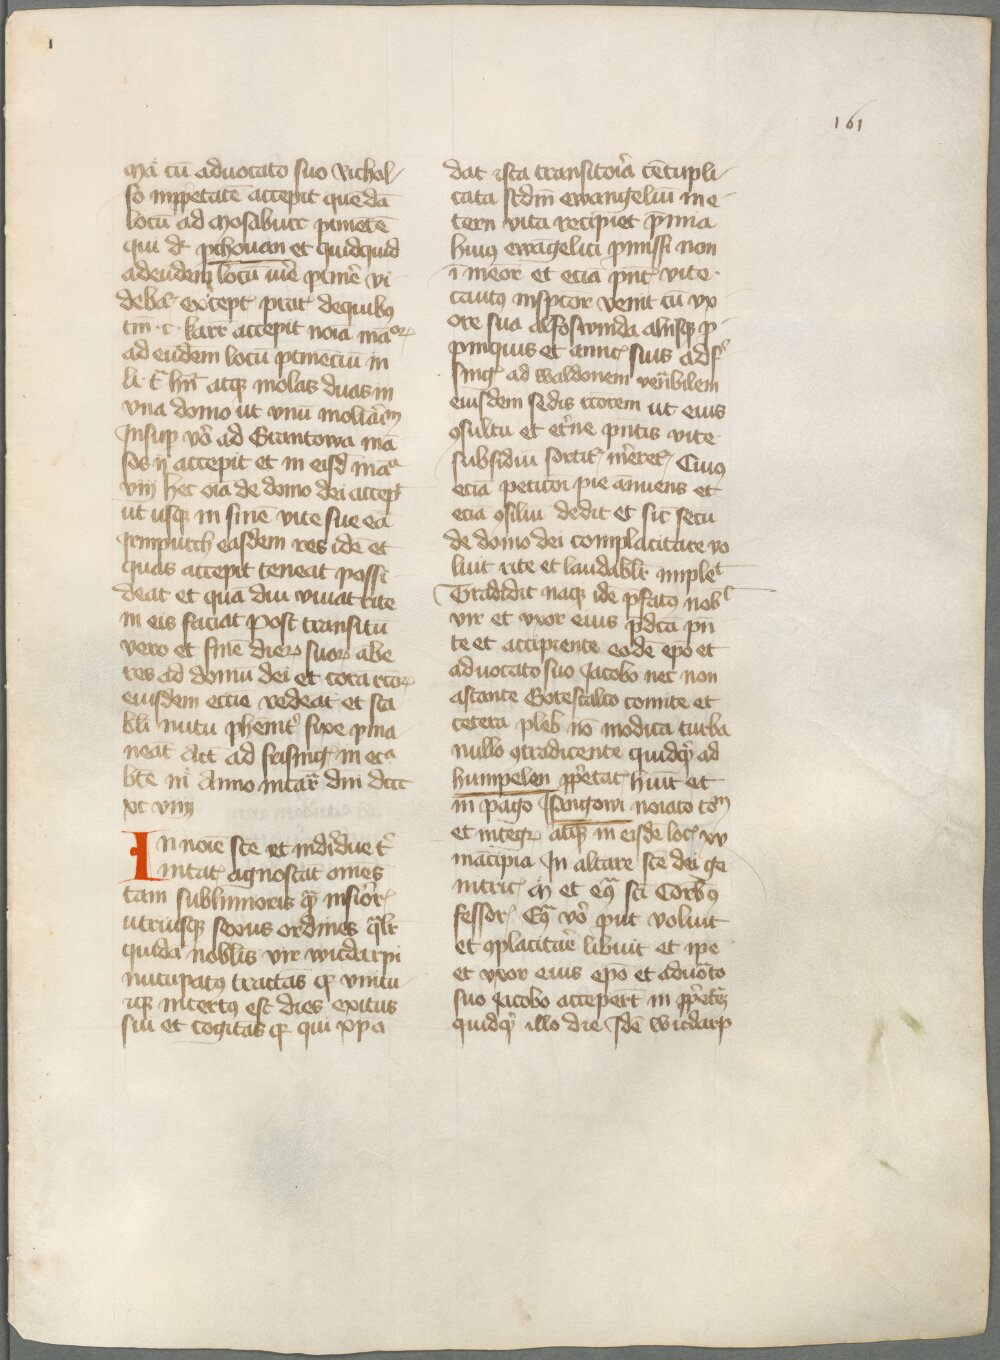 161
mā cū advocato suo Richol-
fo in ꝓprietatē accepit quēdā
locū ad Mosaburc ꝑtinētē
qui dr̄ pchouan et quidquid
ad eūdem locū iur̄e ꝑtinēr̄ vi
debat̄ except̄ prat̄ de quibꝰ
tm̄ · c · karr accepit noīa māorꝫ
ad eūdem locū ꝑtineciū in
atqꝫ molas duas in
vna domo ut vnū
Insup vō ad Grantowa mā
sos ij accepit et in eisd̄ māa
viij hec oīa de domo dei accepit
ut usqꝫ in finē vite sue eā
Irmputch easdem res idē et
quas accepit teneat possi
deat et qua diu vivat rite
in eis faciat Post transitū
vero et finē dierꝫ suorꝫ abe
res ad domū dei et cora rcorꝫ
eiusdem eccīe redeāt et sta
bli nutu phēnit̄ fixe ꝑma
neāt Act̄ ad frisinḡ in eca
bte m̄ Anno incar̄ dni dccc
xc viiij
In noīe scē et indidue t̄
initat̄ agnoscāt omēs
tam sublimioris q̄ȝ infior̄
utriusqꝫ sexus ordines qlr̄
quidā nobilis vir wicdarpi
nūcupatꝰ tractās ꝙ vnicu
iqꝫ incertꝰ est dies exitus
sui et cogitās ꝙ qui xp̄a
dat ista transitoria cētupli
cata scdm̄ ewangeliū in e
tern vita recipiet p̄mia
huiꝰ ewāgelici p̄missi non
ī meōr et ecia p̄nt̄ vite
cautꝰ inspctor venit cū vx
ore sua alfoswinda aliisqꝫ ꝓ
pinquis et amic̄ suis ad f
sinḡ ad waldonem ven̄bilem
eiusdem sedis rcorem ut eius
ꝯsultu et et̄ne p̄ntis vite
subsidiū sortit̄ m̄eret̄ Cuiꝰ
ecia peticōi pie annuens et
ecia ꝯsiliū dedit et sic secū
de domo dei complacitare vo
luit rite et laudabilr̄ implet
Tradidit naqꝫ ide p̄fatꝰ nobl
vir et vxor eius p̄dcā p̄n
te et accipiente eodē ep̄o et
advocato suo Jacobo nec non
astante Gotescalco comite et
cetera pleb̄ nō modica turba
nullo ꝯtradicente quidqͥd ad
humpelen ꝓp̄etat̄ hūit et
in pago Isangowi noīato totm
et integrꝫ atqꝫ in eisdē loc̄ xv
mācipia In altare scē dei ge
nitric̄ M et eqꝫ sci Corbꝰ
fessor̄ Eqꝫ vō p̄ut voluit
et ꝯplacitar̄e libuit et ip̄e
et vxor eius ep̄o et advōto
suo Jacobo acceperūt in ꝓp̄etatē
quidqͥd illo die Idē wicdarp